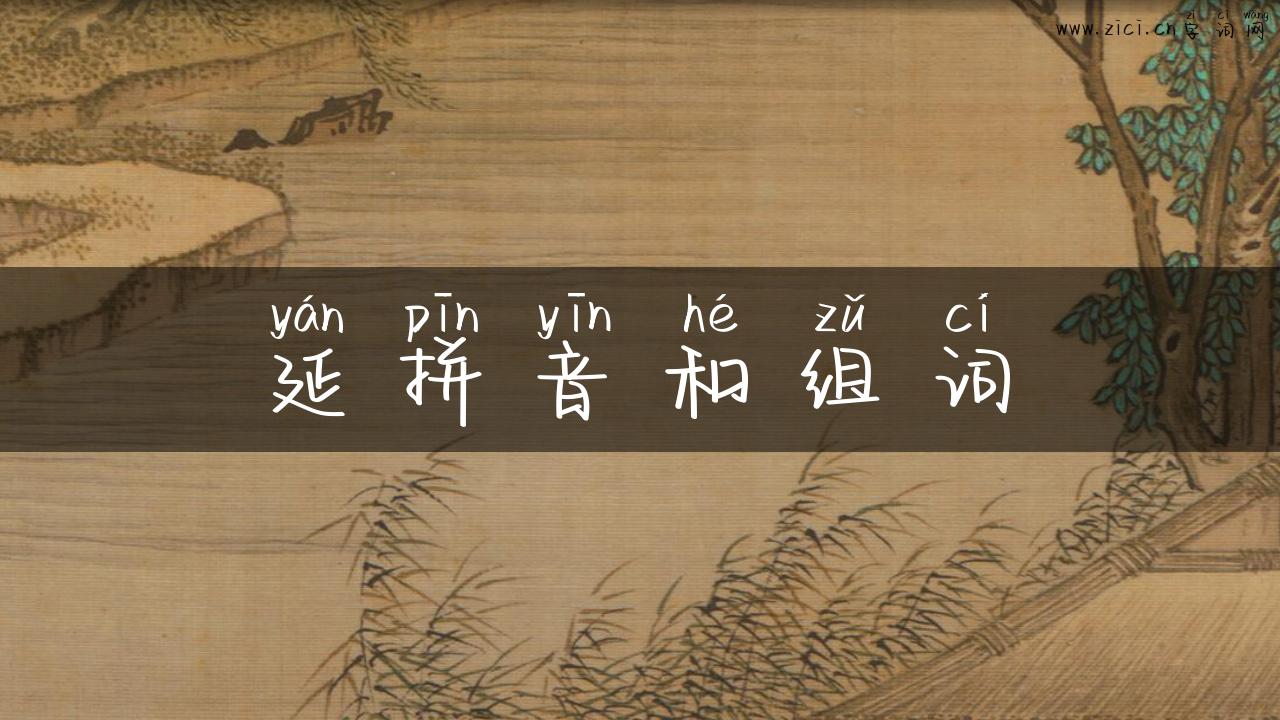 zì cí wǎng
www.zici.cn字词网
yán pīn yīn hé zǔ cí
延拼音和组词